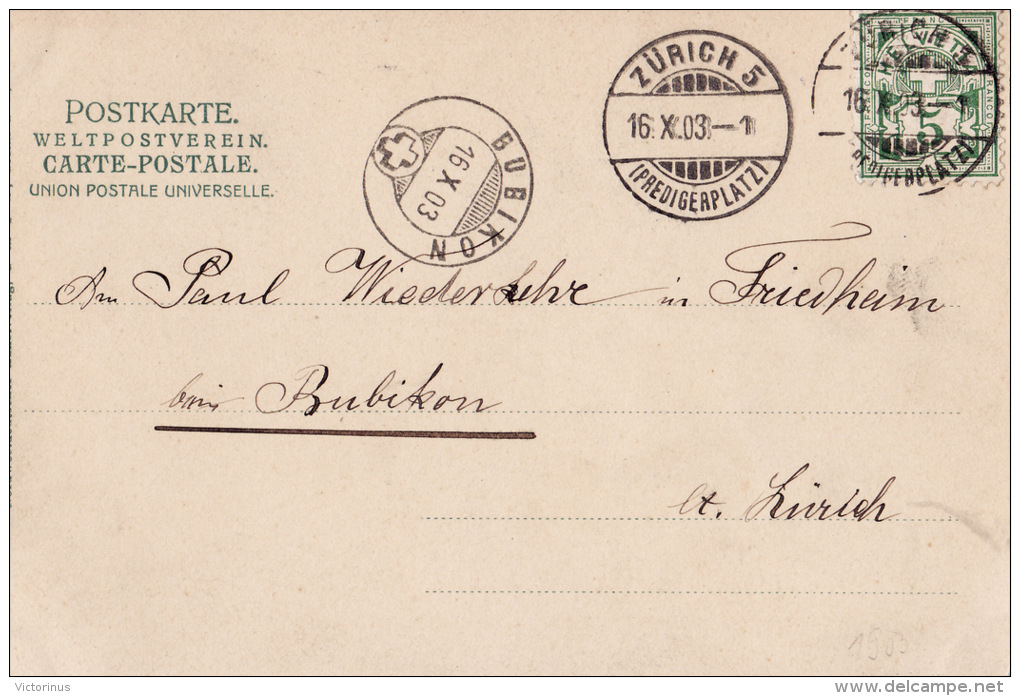 POSTKARTE.
WELTPOSTVEREIN.
CARTE-POSTALE.
UNION POSTALE UNIVERSELLE.
BUBIKON
16 X 03
ZÜRICH 5
16.X.03.-1
(PREDIGERPLATZ)
ZÜRICH 5
16.X.03.-1
(PREDIGERPLATZ)
FRANCO
HELVETIA
5
FRANCO
An Paul Wiederkehr in Friedheim
bei Bubikon
Ct. Zürich
1903
Victorinus
delcampe.net